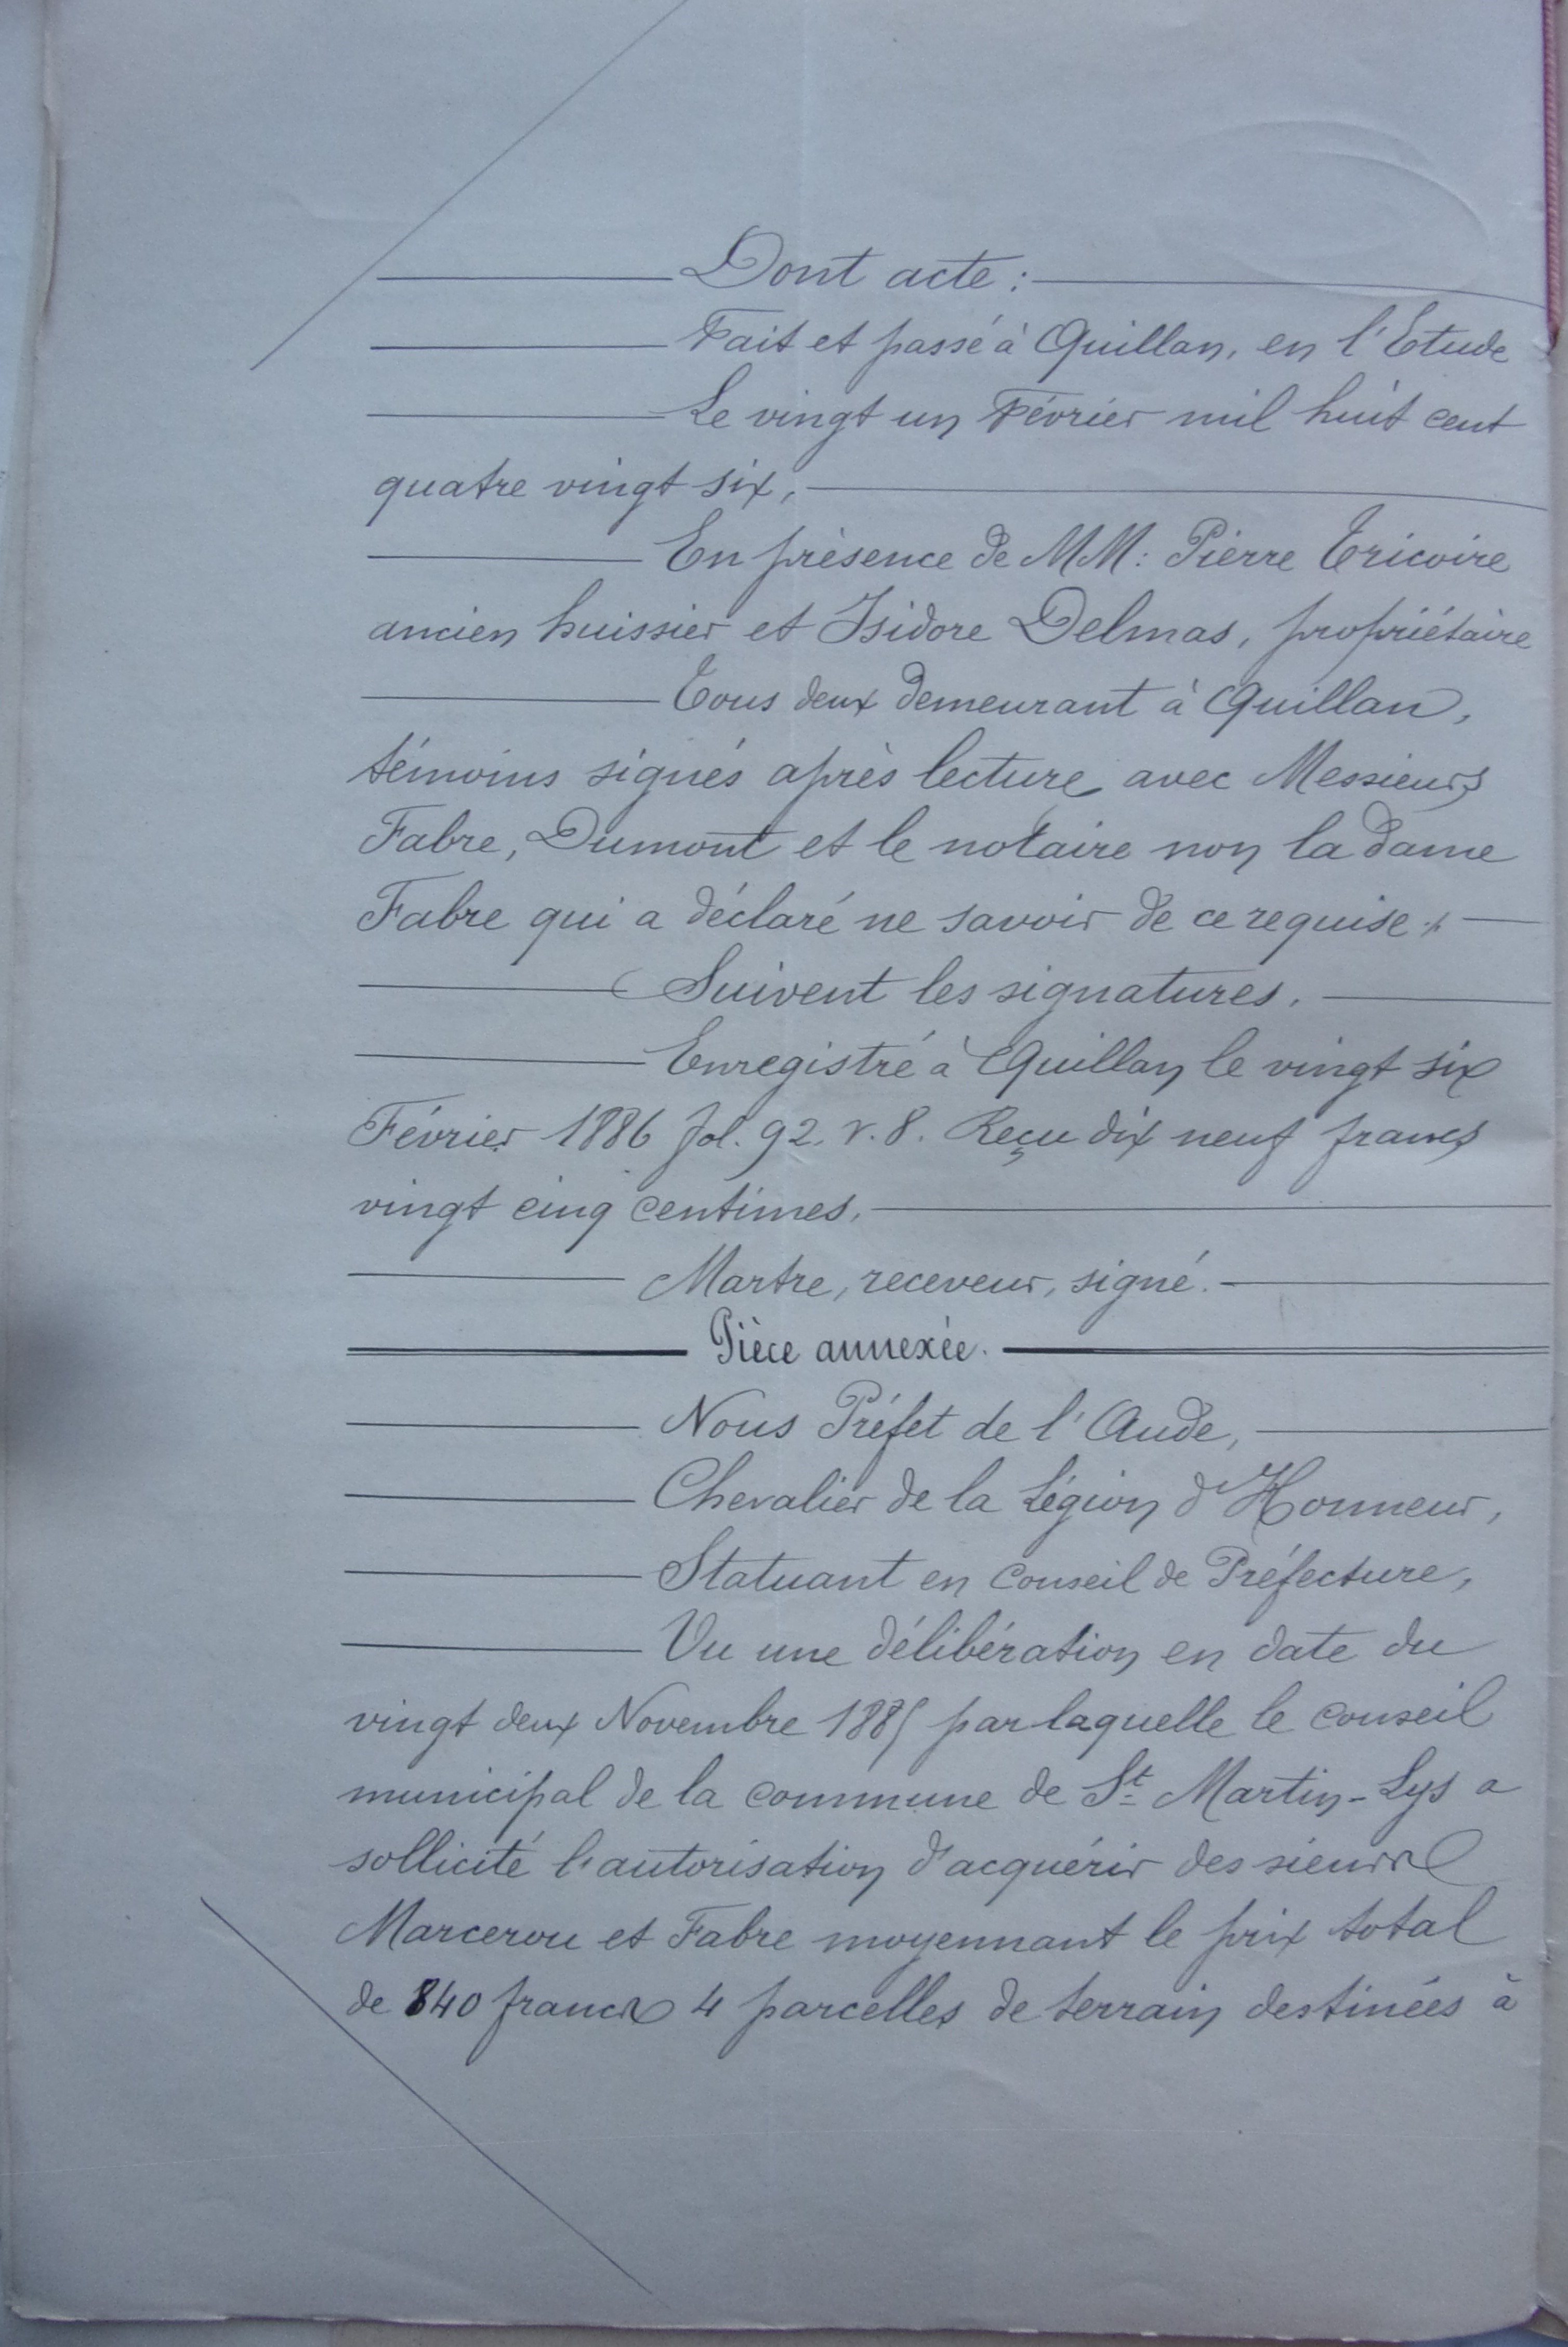 Dont acte :
Fait et passé à Quillan, en l'Etude
Le vingt un Février mil huit cent
quatre vingt six,
En présence de MM: Pierre Tricoire
ancien huissier et Isidore Delmas, propriétaire
Tous deux demeurant à Quillan,
témoins signés après lecture avec Messieurs
Fabre, Dumont et le notaire non la dame
Fabre qui a déclaré ne savoir de ce requise.
Suivent les signatures.
Enregistré à Quillan le vingt six
Février 1886 fol. 92. v. 8. Reçu dix neuf francs
vingt cinq centimes.
Martre, receveur, signé.
Pièce annexée.
Nous Préfet de l'Aude,
Chevalier de la Légion d'Honneur,
Statuant en conseil de Préfecture,
Vu une délibération en date du
vingt deux Novembre 1885 par laquelle le conseil
municipal de la commune de St Martin-Lys a
sollicité l'autorisation d'acquérir des sieurs
Marcerou et Fabre moyennant le prix total
de 840 francs 4 parcelles de terrain destinées à